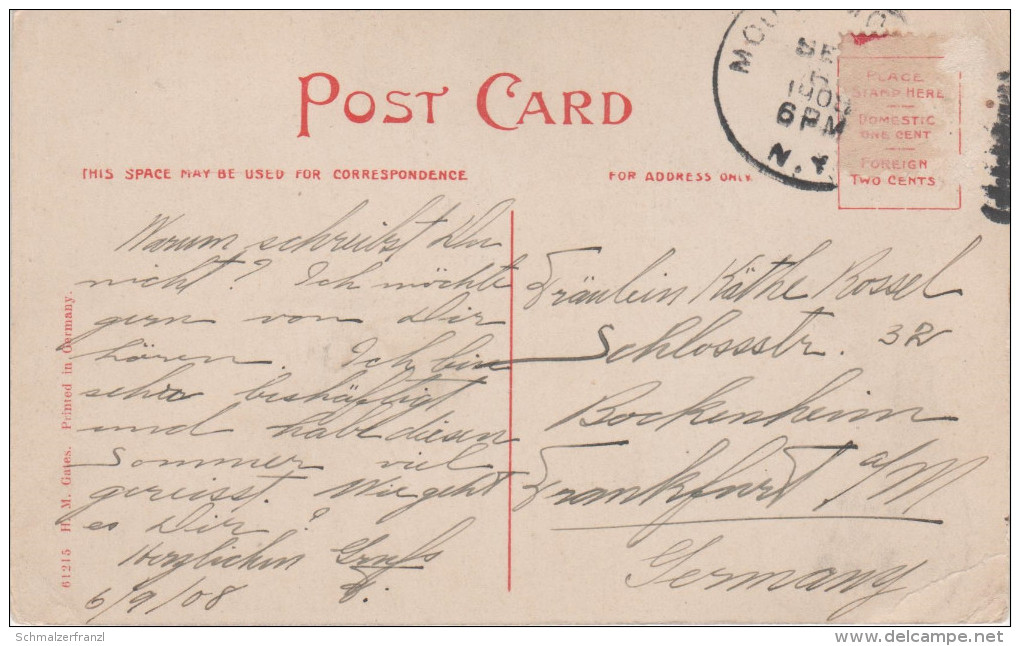 POST CARD
THIS SPACE MAY BE USED FOR CORRESPONDENCE
FOR ADDRESS ONLY.
SE
1908
6 PM
N.Y.
PLACE
STAMP HERE
DOMESTIC
ONE CENT
FOREIGN
TWO CENTS
Warum schreibst Du
nicht? Ich möchte
gern von Dir
hören. Ich bin
sehr beshäftigt
und habe diesen
Sommer viel
gereisst. Wie geht
es Dir?
Herzlichen Gruss
6/9/08
Fräulein Käthe Rossel
Schlossstr. 32
Bockenheim
Frankfurt a/M
Germany
61215 H. M. Gates. Printed in Germany.
Schmalzerfranzl
delcampe.net